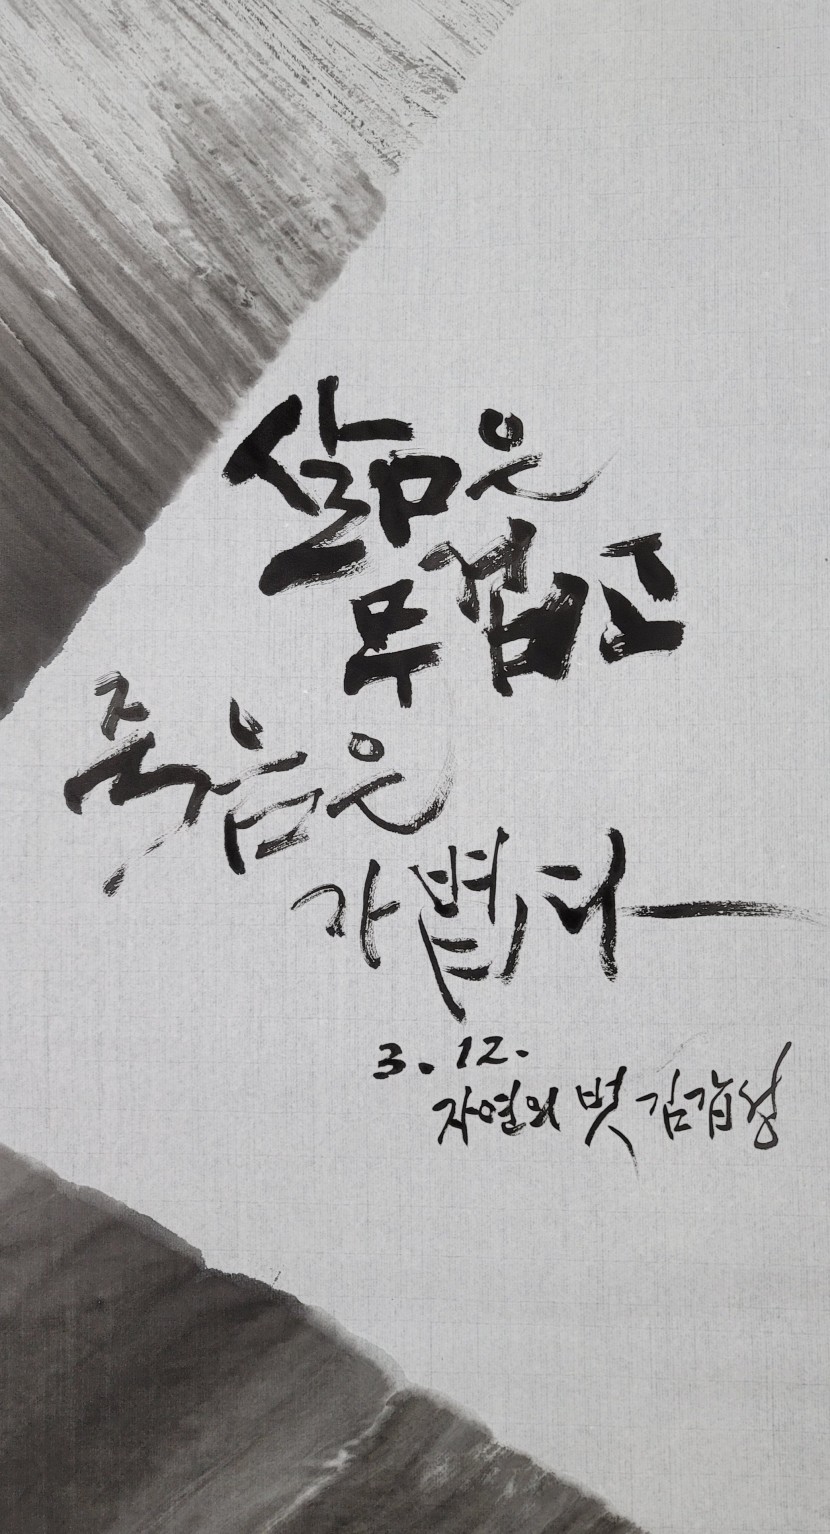 삶은
무겁고
죽음은
가볍다
3. 12.
자연의 벗 김갑성